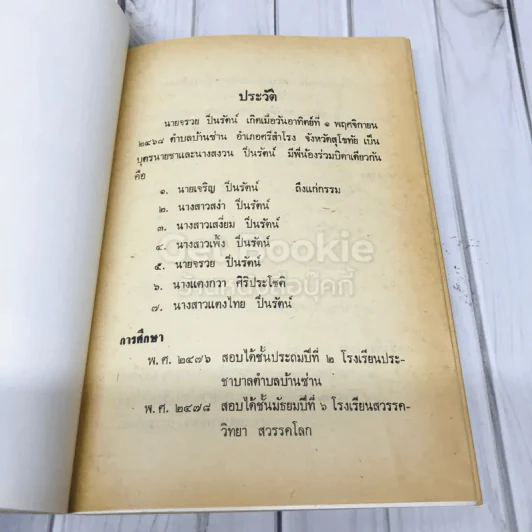 ประวัติ
นายจรวย ปิ่นรัตน์ เกิดเมื่อวันอาทิตย์ที่ ๑ พฤศจิกายน
๒๔๖๘ ตำบลบ้านซ่าน อำเภอศรีสำโรง จังหวัดสุโขทัย เป็น
บุตรนายชาและนางสงวน ปิ่นรัตน์ มีพี่น้องร่วมบิดาเดียวกัน
คือ
๑. นายเจริญ ปิ่นรัตน์ ถึงแก่กรรม
๒. นางสาวสง่า ปิ่นรัตน์
๓. นางสาวเสงี่ยม ปิ่นรัตน์
๔. นางสาวเพิ้ง ปิ่นรัตน์
๕. นายจรวย ปิ่นรัตน์
๖. นางแตงกวา ศิริประโชติ
๗. นางสาวแตงไทย ปิ่นรัตน์
การศึกษา
พ.ศ. ๒๔๗๖ สอบได้ชั้นประถมปีที่ ๒ โรงเรียนประ-
ชาบาลตำบลบ้านซ่าน
พ.ศ. ๒๔๗๘ สอบได้ชั้นมัธยมปีที่ ๖ โรงเรียนสวรรค-
วิทยา สวรรคโลก